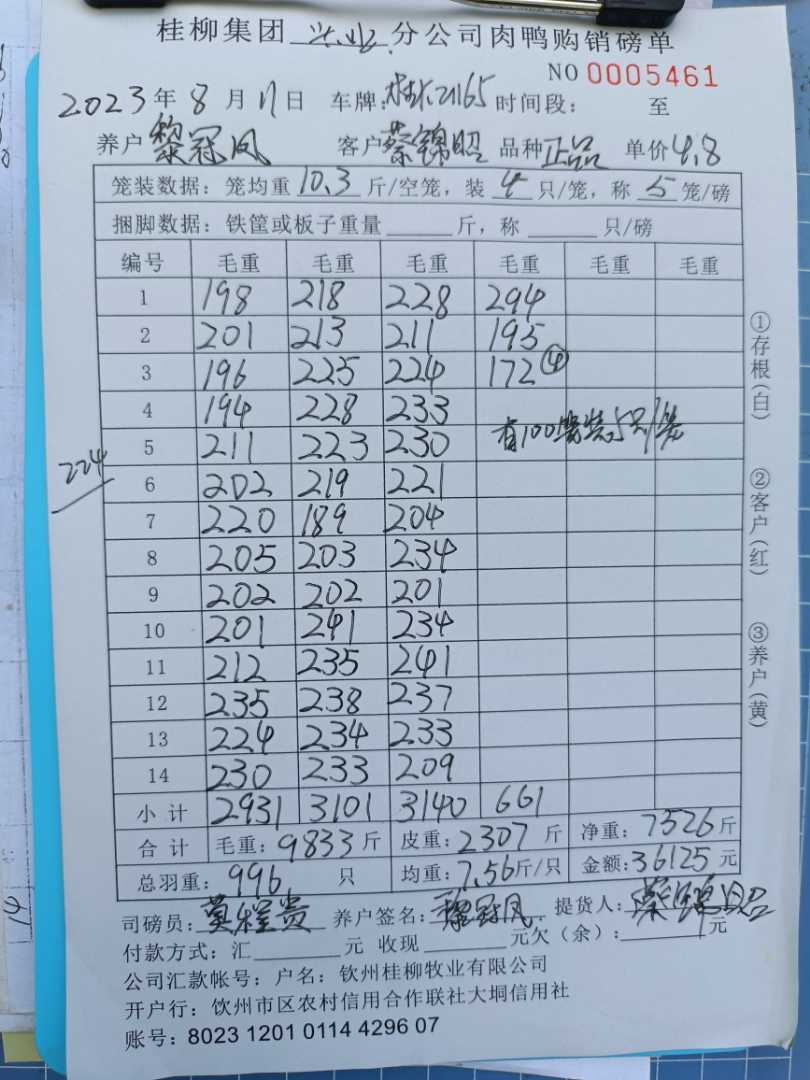 桂柳集团 兴业 分公司肉鸭购销磅单
NO 0005461
2023年8月17日 车牌: 桂K21165 时间段: 至
养户 黎冠凤 客户 蔡锦昭 品种 正品 单价 4.8
笼装数据：笼均重 10.3 斤/空笼，装 4 只/笼，称 5 笼/磅
捆脚数据：铁筐或板子重量 斤，称 只/磅
编号 毛重 毛重 毛重 毛重 毛重 毛重
1 198 218 228 294
2 201 213 211 195
3 196 225 224 172 ④
4 194 228 233
5 211 223 230 有100笼装5只/笼
224
6 202 219 221
7 220 189 204
8 205 203 234
9 202 202 201
10 201 241 234
11 212 235 241
12 235 238 237
13 224 234 233
14 230 233 209
小计 2931 3101 3140 661
合计 毛重：9833斤 皮重：2307斤 净重：7526斤
总羽重：996 只 均重：7.56斤/只 金额：36125元
司磅员：莫程贵 养户签名：黎冠凤 提货人：蔡锦昭
付款方式：汇 元 收现 元欠（余）： 元
公司汇款帐号：户名：钦州桂柳牧业有限公司
开户行：钦州市区农村信用合作联社大垌信用社
账号：8023 1201 0114 4296 07
①存根（白）
②客户（红）
③养户（黄）